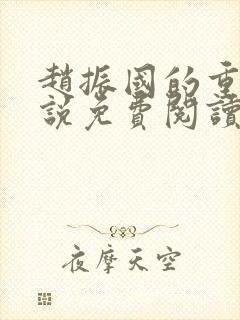 趙振國的重
說免費閱讀
夜摩天空